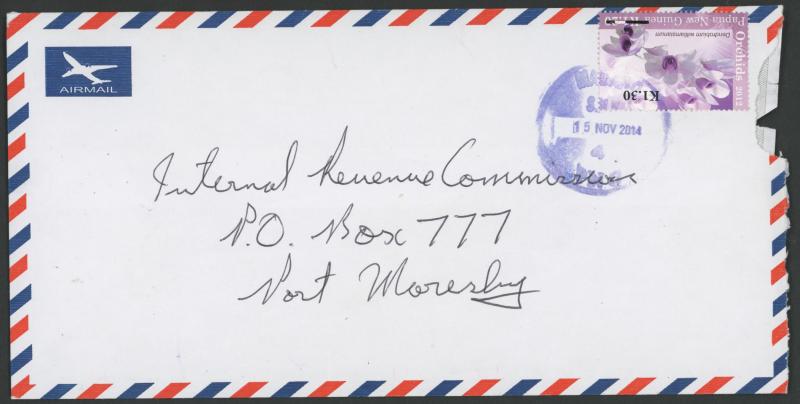 AIRMAIL
Papua New Guinea K1.20
Orchids 2012
Dendrobium williamsianum
K1.30
15 NOV 2014
4
Internal Revenue Commission
P.O. Box 777
Port Moresby